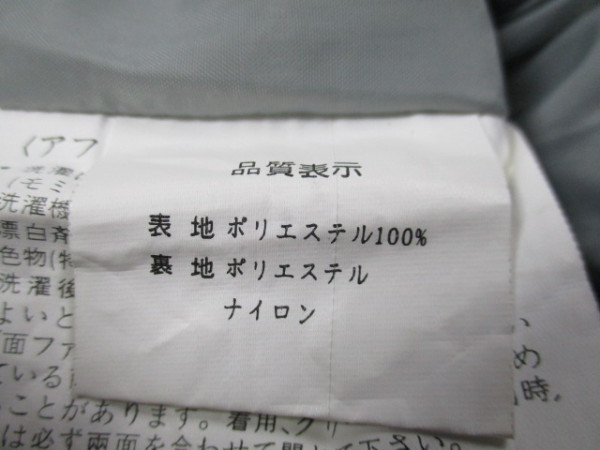 品質表示
表地 ポリエステル100%
裏地 ポリエステル
ナイロン
(アフ
(モミ
洗濯機
漂白剤
色物(特
洗濯後
よいと
面ファ
ている
ことがあります。着用、クリ
は必ず両面を合わせて閉じて下さい。
い
め
時.